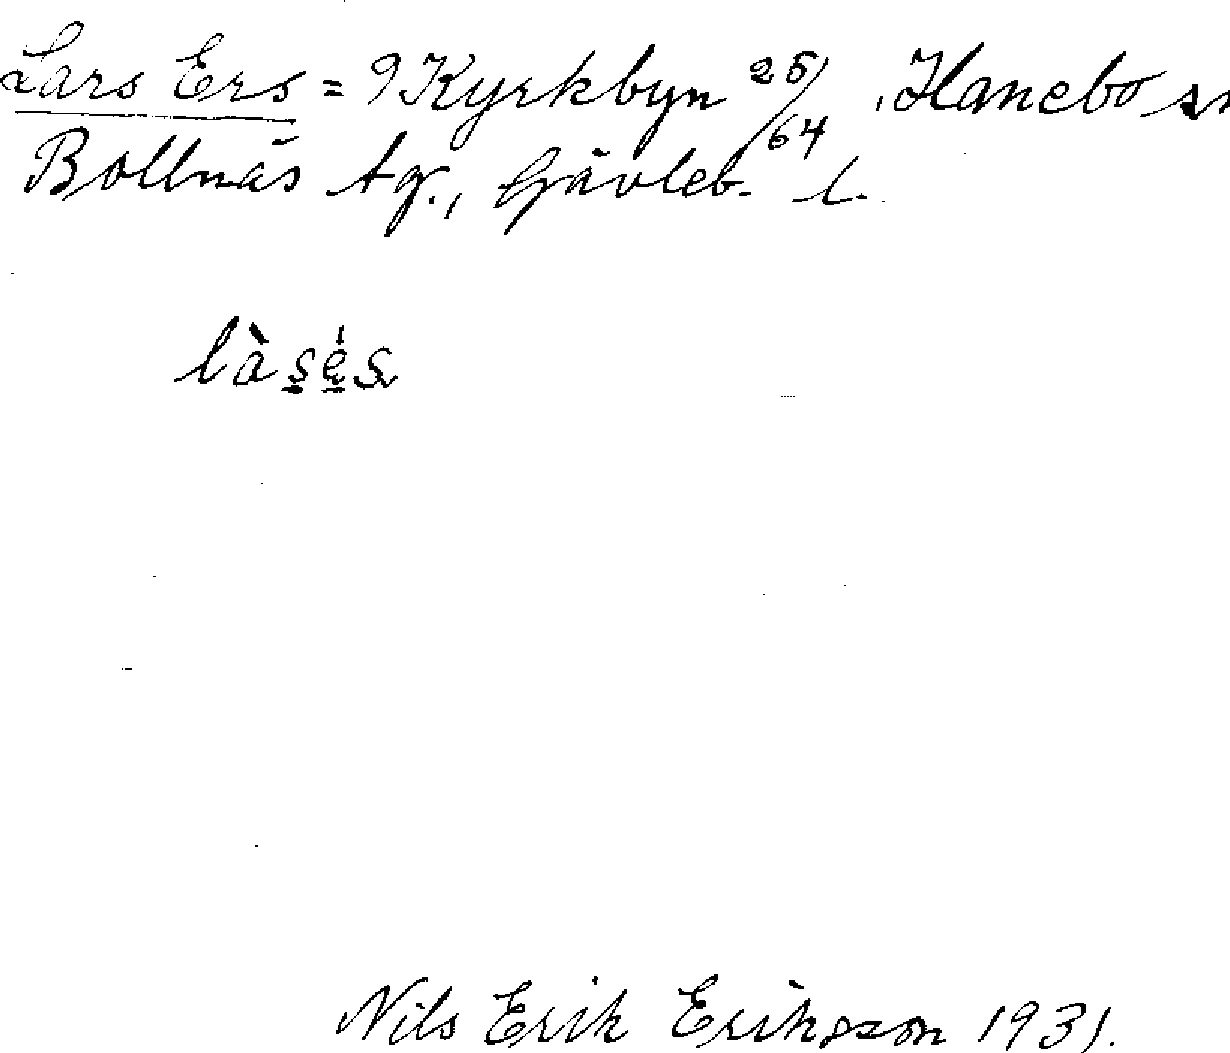 Lars Ers = 9 Kyrkbyn 25/64, Hanebo sn
Bollnäs tg., Gävleb. l.
làses
Nils Erik Eriksson 1931.